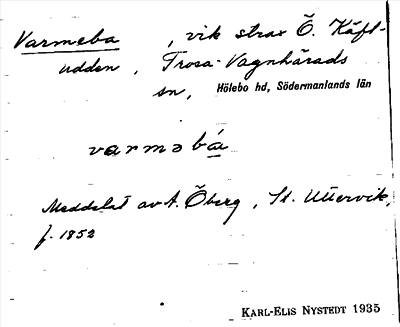 Varmeba, vik strax Ö. Käft-
udden, Trosa-Vagnhärads
sn, Hölebo hd, Södermanlands län
varməbá
Meddelat av A. Öberg, St. Uttervik,
f. 1852
KARL-ELIS NYSTEDT 1935